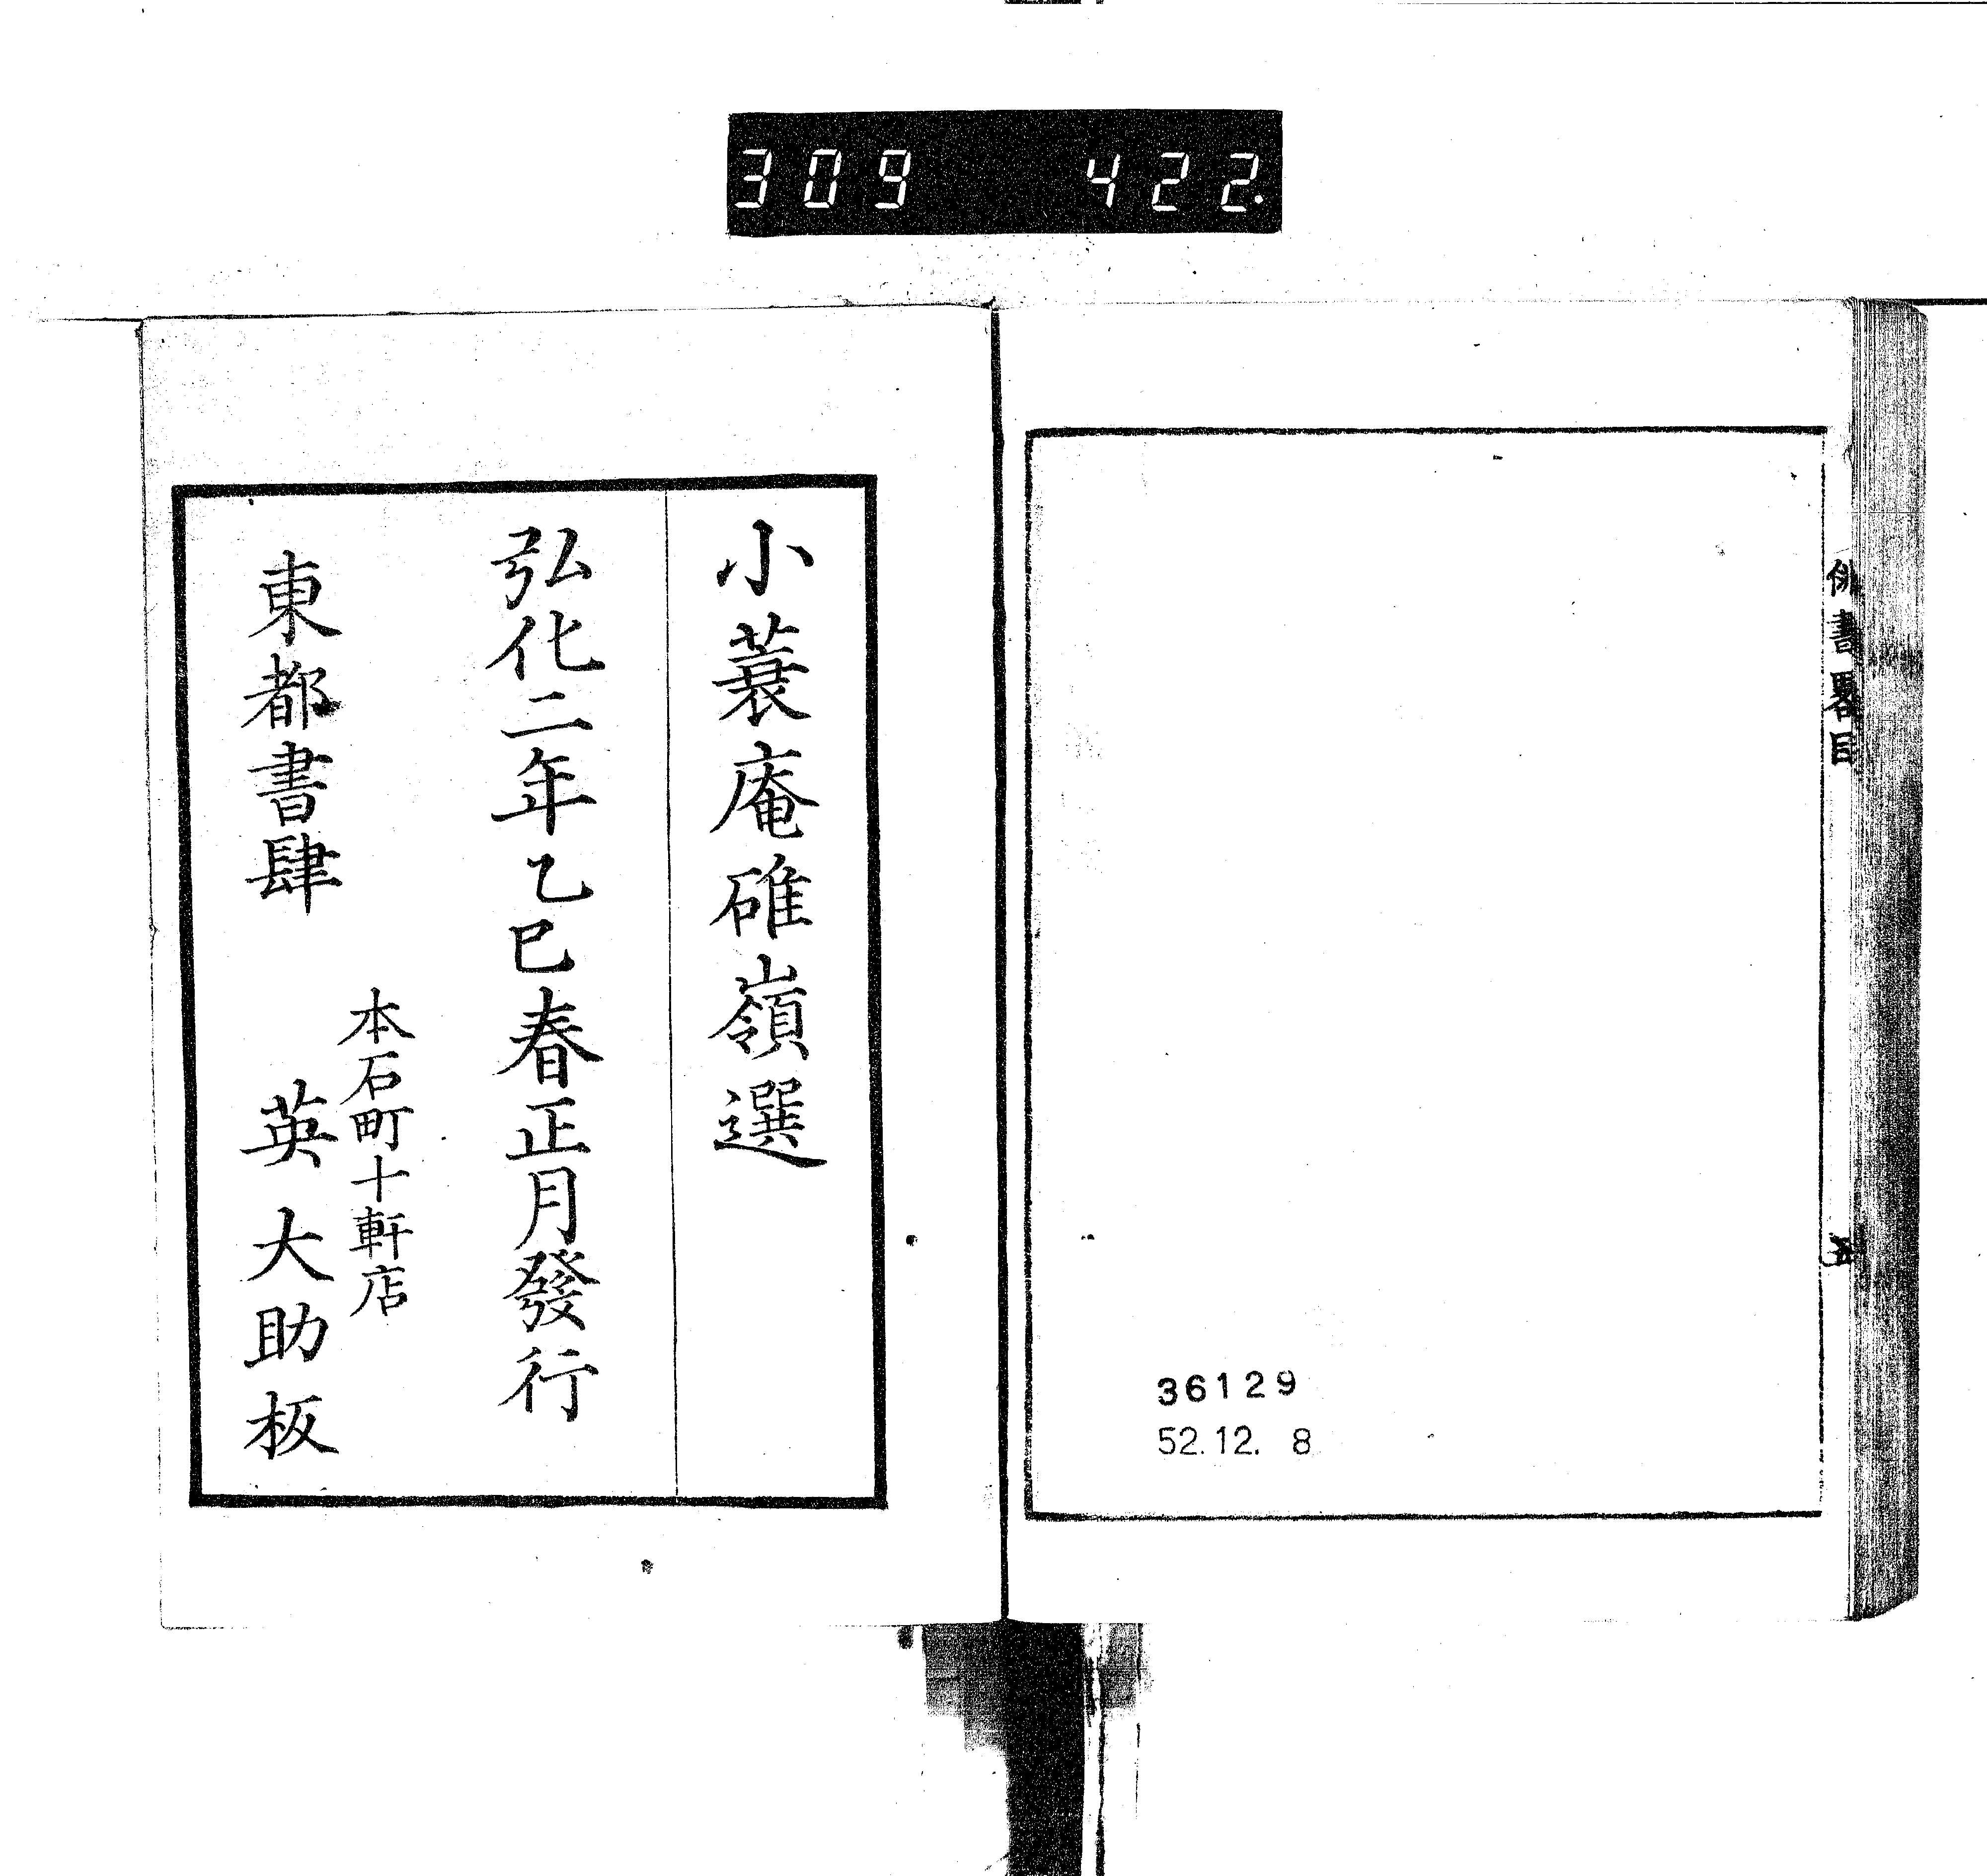 309 422.
俳書畧目
五
36129
52.12. 8
小蓑庵碓嶺選
弘化二年乙巳春正月發行
本石町十軒店
東都書肆 英大助板